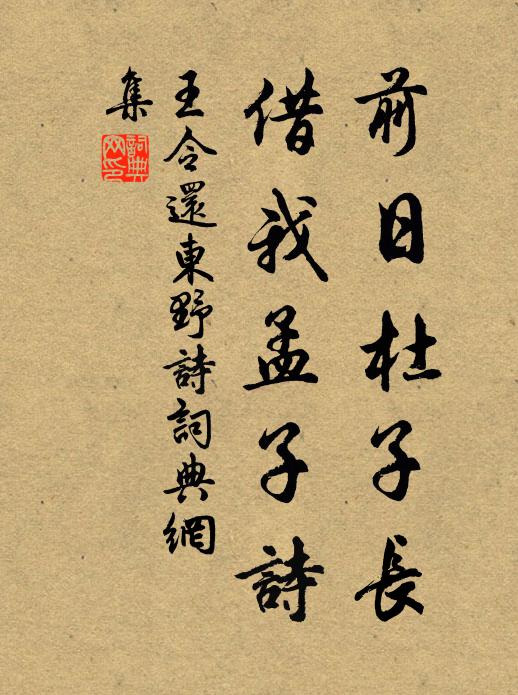 前日杜子長
借我孟子詩
王令還東野詩詞典網
集
詞典
网印